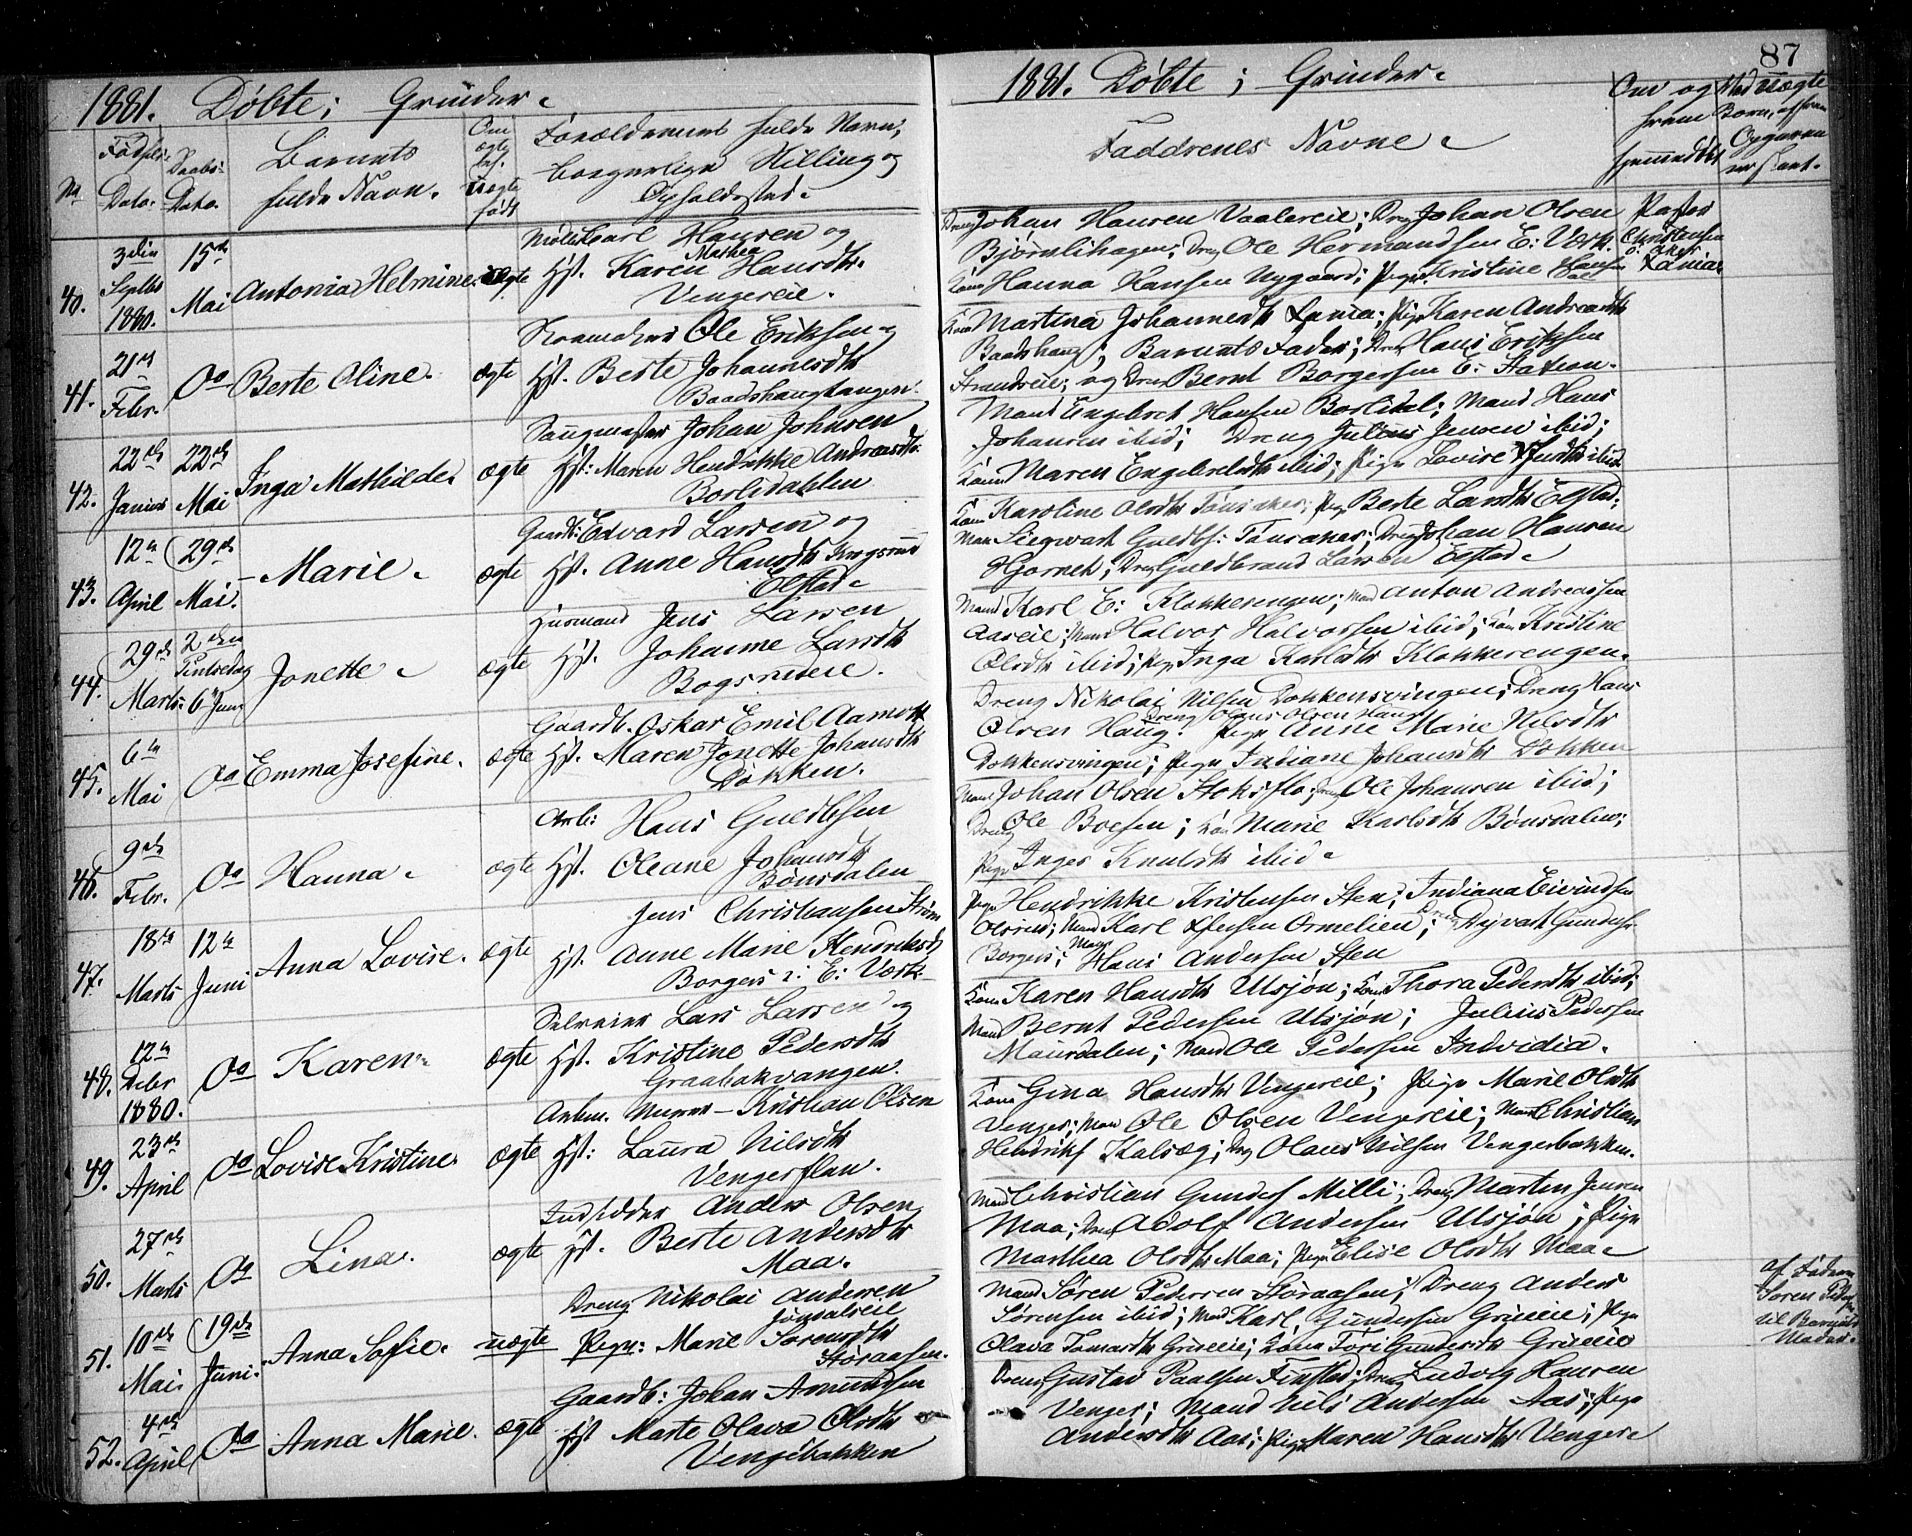 1881. Døbte i Grinder.
Fødsels-
Daabs-
Barnets
Om
ægte
el.
uægte
født
Forældrenes fulde Navn,
borgerlige Stilling og
Opholdssted.
No
Dato.
Dato.
fulde Navn.
40.
3die
Septbr
1880.
15de
Mai
Antonia Helmine.
uægte
Karl Hansen og
Hst. Karen Mathea Hansdtr.
Vengereie.
41.
21de
Febr.
Do
Berte Oline.
ægte
Ole Eriksen og
Hst. Berte Johannesdtr
Baadshaugtangen
42.
22de
Januar
22de
Mai
Inga Mathilde.
ægte
Johan Johnsen
Hst: Maren Hendrikke Andreasdtr.
Borlidalen
43.
12te
April
29de
Mai.
Marie.
ægte
Gaardb: Edvard Larsen og
Hst. Anne Hansdtr
Olstad.
44.
29de
Marts.
2den
Pintsedag
6te Juni
Jonette.
ægte
Husmand Jens Larsen
Hst. Johanne Larsdtr
45.
6te
Mai
Do
Emma Josefine.
ægte
Gaardb. Oskar Emil Aamodt
Hst. Maren Jonette Johansdtr
Dokken.
46.
9de
Febr.
Do
Hanna.
ægte
Arb: Hans Guldbsen
Hst. Oleane Johansdtr
Bönsdalen
47.
18de
Marts
12te
Juni
Anna Lovise.
ægte
Jens Christiansen Strøm
Hst. Anne Marie Hendriksd
Borgers i E: Værk
48.
12te
Debr
1880.
Do
Karen
ægte
Selveier Lars Larsen og
Hst. Kristine Pedersdtr
Graabakvangen.
49.
23de
April
Do
Lovise Kristine.
ægte
Kristian Olsen
Hst: Laura Nilsdtr
Vengerflan.
50.
27de
Marts
Do
Lina.
ægte
Indsidder Anders Olsen
Hst. Berte Andersdtr
Maa.
51.
10de
Mai.
19de
Juni.
Anna Sofie.
uægte
Dreng Nikolai Andersen
Pige: Marie Sørensdtr
Støraasen.
52.
4de
April
Do
Anna Marie.
ægte
Gaardb: Johan Amundsen
Hst Marte Olava Olsdtr
Vengebakken
87
1881. Døbte i Grinder.
Faddrenes Navne.
Om og
hvem
Med uægte
Børn, af hvem
Opgaven
er skeet.
Dreng Johan Hansen Vaalereie; Dreng Johan Olsen
Bjørnlihagen; Dreng Ole Hermandsen E: Værk.
Kone Hanna Hansen Nygaard; Pige Kristine
Pastor
Christensen
Kone Martina Johannesdtr Lania; Pige Karen Andreasdtr
Baadshaug; Barnets Fader; Dreng Hans Eriksen
Strandeie; og Dreng Bernt Borgersen E: Station.
Mand Engebret Hansen Borlidal; Mand Hans
Johansen ibid; Dreng Julius Jensen ibid;
Kone Maren Engebretsdtr ibid; Pige Lovise
Kone Karoline Olsdtr; Pige Berte Larsdtr Olstad;
Mand Siegwart Guldbs:; Dreng Johan Hansen
Dreng Guldbrand Larsen Olstad.
Mand Karl E: Klokkerengen; Mand Anton Andreassen
Aaseie; Mand Halvor Halvorsen ibid; Kone Kristine
Olsdtr ibid; Pige Inga Karlsdtr Klokkerengen.
Dreng Nikolai Nilsen Dokkensvingen; Dreng Hans
Dreng Olaus Olsen Haug
Olsen Haug. Pige Anne Marie Nilsdtr
Dokkensvingen; Pige Indiane Johansdtr Dokken
Mand Johan Olsen Stoksflo; Dreng Ole Johansen ibid;
Dreng Ole Boesen; Kone Marie Karlsdtr Bönsdalen;
Pige Inger Knudsdtr ibid.
Pige Hendrikke Kristensen Sten; Indiana Eivindsen
Mand Karl
Borgers; Mand Hans Andersen Sten
Kone Karen Hansdtr Ulsjøn; Kone Thora Pedersdtr ibid;
Mand Bernt Pedersen Ulsjøn; Julius Pedersen
Maursdalen; Mand Ole Pedersen
Kone Gina Hansdtr Vengereie; Pige Marie Olsdtr
Venger; Mand Ole Olsen Vengereie; Mand Christian
Hendriks Kalsæg; Dreng Olaus Nilsen Vengerbakken.
Mand Christian Gunders Milli; Dreng Martin Jensen
Maa; Dreng Adolf Andersen Ulsjøn; Pige
Marthea Olsdtr Maa; Pige Elise Olsdtr Maa.
Mand Søren Pedersen Støraasen; Dreng Anders
Sørensen ibid; Mand Karl Gundersen Grueeie; Pige
Olava; Kone Tore Gundersdtr Grueeie
af Faderen
Søren
til Barnets
Moder.
Dreng Gustav Paalsen Finstad; Dreng Ludvig Hansen
Venger; Mand Nils Andersen Aas; Pige
Andersdtr Aas; Pige Maren Hansdtr Venger.